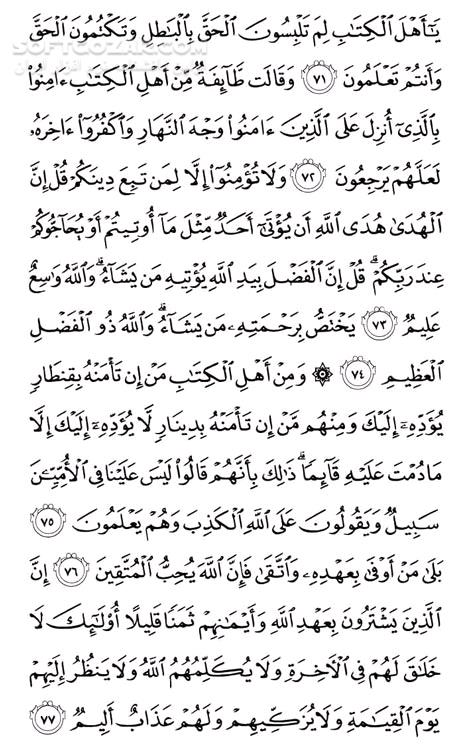 يَـٰٓأَهْلَ ٱلْكِتَـٰبِ لِمَ تَلْبِسُونَ ٱلْحَقَّ بِٱلْبَـٰطِلِ وَتَكْتُمُونَ ٱلْحَقَّ
وَأَنتُمْ تَعْلَمُونَ ٧١ وَقَالَت طَّآئِفَةٌ مِّنْ أَهْلِ ٱلْكِتَـٰبِ ءَامِنُوا۟
بِٱلَّذِىٓ أُنزِلَ عَلَى ٱلَّذِينَ ءَامَنُوا۟ وَجْهَ ٱلنَّهَارِ وَٱكْفُرُوٓا۟ ءَاخِرَهُۥ
لَعَلَّهُمْ يَرْجِعُونَ ٧٢ وَلَا تُؤْمِنُوٓا۟ إِلَّا لِمَن تَبِعَ دِينَكُمْ قُلْ إِنَّ
ٱلْهُدَىٰ هُدَى ٱللَّهِ أَن يُؤْتَىٰٓ أَحَدٌ مِّثْلَ مَآ أُوتِيتُمْ أَوْ يُحَآجُّوكُمْ
عِندَ رَبِّكُمْ ۗ قُلْ إِنَّ ٱلْفَضْلَ بِيَدِ ٱللَّهِ يُؤْتِيهِ مَن يَشَآءُ ۗ وَٱللَّهُ وَٰسِعٌ
عَلِيمٌ ٧٣ يَخْتَصُّ بِرَحْمَتِهِۦ مَن يَشَآءُ ۗ وَٱللَّهُ ذُو ٱلْفَضْلِ
ٱلْعَظِيمِ ٧٤ ۞ وَمِنْ أَهْلِ ٱلْكِتَـٰبِ مَنْ إِن تَأْمَنْهُ بِقِنطَارٍ
يُؤَدِّهِۦٓ إِلَيْكَ وَمِنْهُم مَّنْ إِن تَأْمَنْهُ بِدِينَارٍ لَّا يُؤَدِّهِۦٓ إِلَيْكَ إِلَّا
مَا دُمْتَ عَلَيْهِ قَآئِمًا ۗ ذَٰلِكَ بِأَنَّهُمْ قَالُوا۟ لَيْسَ عَلَيْنَا فِى ٱلْأُمِّيِّـۧنَ
سَبِيلٌ وَيَقُولُونَ عَلَى ٱللَّهِ ٱلْكَذِبَ وَهُمْ يَعْلَمُونَ ٧٥
بَلَىٰ مَنْ أَوْفَىٰ بِعَهْدِهِۦ وَٱتَّقَىٰ فَإِنَّ ٱللَّهَ يُحِبُّ ٱلْمُتَّقِينَ ٧٦ إِنَّ
ٱلَّذِينَ يَشْتَرُونَ بِعَهْدِ ٱللَّهِ وَأَيْمَـٰنِهِمْ ثَمَنًا قَلِيلًا أُو۟لَـٰٓئِكَ لَا
خَلَـٰقَ لَهُمْ فِى ٱلْـَٔاخِرَةِ وَلَا يُكَلِّمُهُمُ ٱللَّهُ وَلَا يَنظُرُ إِلَيْهِمْ
يَوْمَ ٱلْقِيَـٰمَةِ وَلَا يُزَكِّيهِمْ وَلَهُمْ عَذَابٌ أَلِيمٌ ٧٧